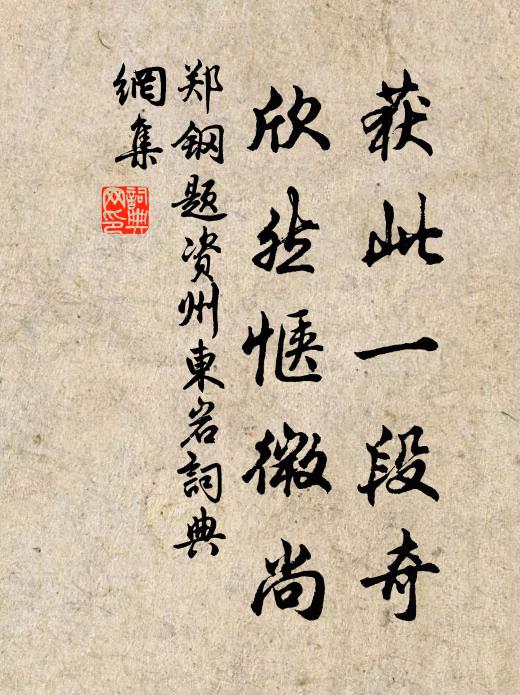 获此一段奇
欣然惬微尚
郑钢题资州東岩詞典
網集
詞典网印